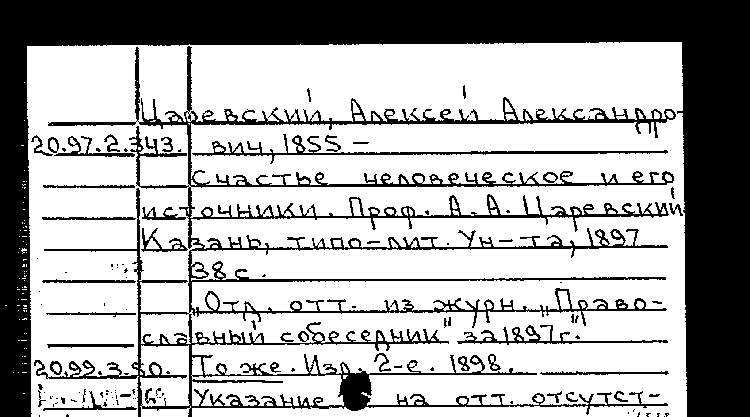 Царевский, Алексей Александро-
20.97.2.343. вич, 1855 –
Счастье человеческое и его
источники. Проф. А. А. Царевский
Казань, типо-лит. Ун-та, 1897
38 с.
„Отд. отт. из журн. „Право-
славный собеседник" за 1897г.
20.99.3.90. То же. Изд. 2-е. 1898.
Указание на отт. отсутст-